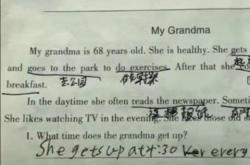 My Grandma
My grandma is 68 years old. She is healthy. She gets
and goes to the park to do exercises. After that she
去公园 做
breakfast.
In the daytime she often reads the newspaper. Someti
She likes watching TV in the evening
1. What time does the grandma get up?
She gets up at 4:30 ever